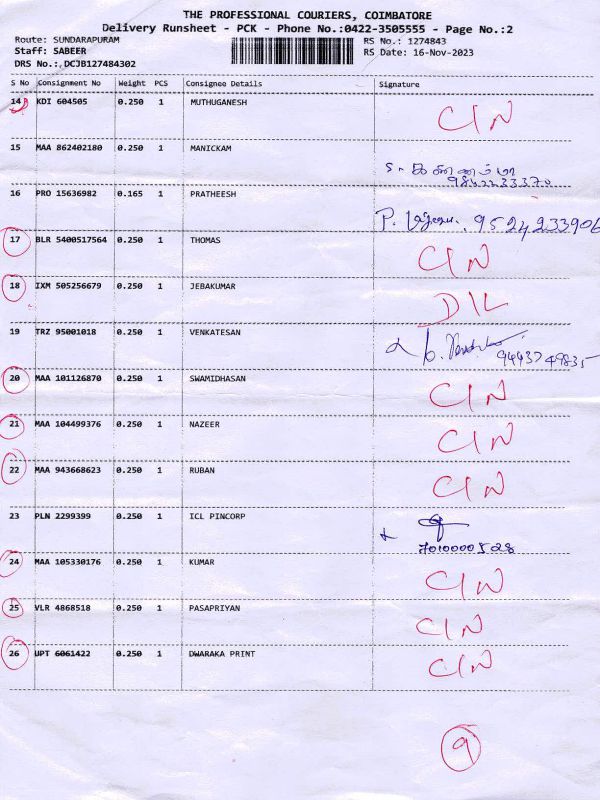 THE PROFESSIONAL COURIERS, COIMBATORE
Delivery Runsheet - PCK - Phone No.:0422-3505555 - Page No.:2
Route: SUNDARAPURAM RS No.: 1274843
Staff: SABEER RS Date: 16-Nov-2023
DRS No.:,DCJB127484302
S No Consignment No Weight PCS Consignee Details Signature
14 KDI 604505 0.250 1 MUTHUGANESH CIN
15 MAA 862402180 0.250 1 MANICKAM
16 PRO 15636982 0.165 1 PRATHEESH P. 9524233906
17 BLR 5400517564 0.250 1 THOMAS CIN
18 IXM 505256679 0.250 1 JEBAKUMAR DIL
19 TRZ 95001018 0.250 1 VENKATESAN 9443749835
20 MAA 101126870 0.250 1 SWAMIDHASAN CIN
21 MAA 104499376 0.250 1 NAZEER CIN
22 MAA 943668623 0.250 1 RUBAN CIN
23 PLN 2299399 0.250 1 ICL PINCORP
7010000528
24 MAA 105330176 0.250 1 KUMAR CIN
25 VLR 4868518 0.250 1 PASAPRIYAN CIN
26 UPT 6061422 0.250 1 DWARAKA PRINT CIN
9